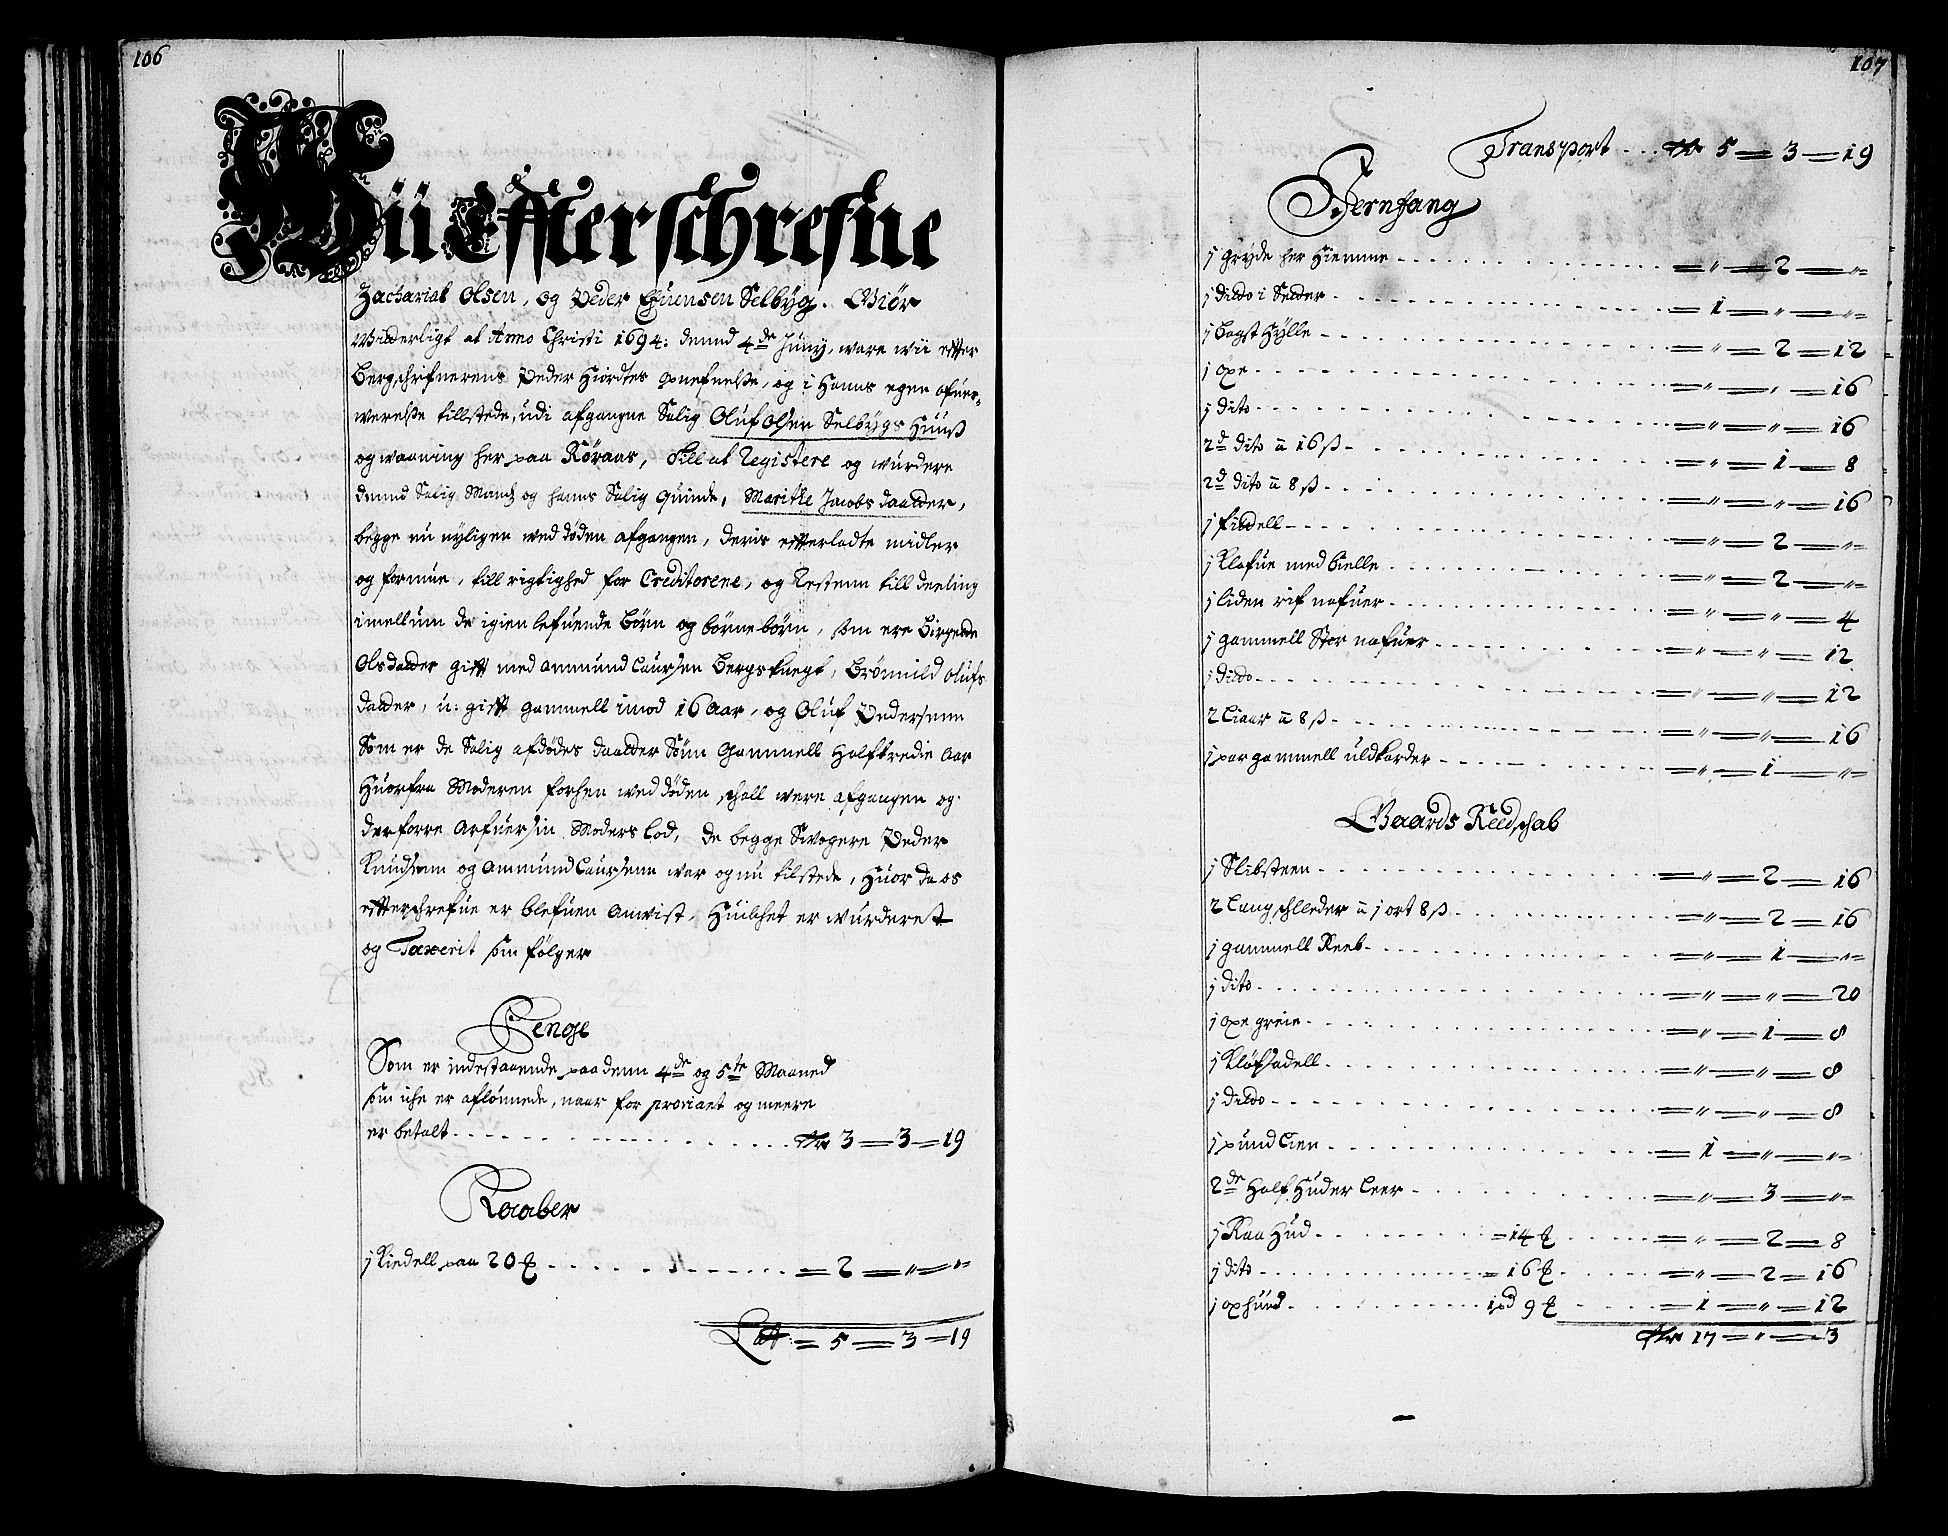 106
Wii Effterschrefne
Zacharias Olsen, og Peder Efuensen Selbÿg. Giör
Witterligt at Anno Christi 1694: dennd 4de Junÿ, ware wii efter
Bergschrifuerens Peder Hiordtes opnefnelße, og i Hanns egen ofuer-
werelße tillstede, udi afgangne Salig Oluf Olsen Selbÿgs Huuß
og waaning her paa Röraas, Till at Registere og wurdere
dennd Salig Mands og hanns Salig Quinde, Maritke Jacobs daatter,
begge nu nÿligen wed döden afgangen, deris efterladte midler
og formue, till rigtighed for Creditorene, og Restenn till deeling
imellum de igien lefuende Börn og börne börn, som ere Birgette
Olsdatter gift med Ammund Laursen Bergsknegt, Brönnild Olufs
datter, u: gift gammell imod 16 Aar, og Oluf Pedersenn
Som er de Salig afdödes daatter Sönn Gammell Halftredie Aar
Huorfra Moderen forhen wed döden schall were afgangen og
derforre Arfuer sin Moders Lod, de begge Swogere Peder
Knudsenn og Ammund Laursenn war og nu tilstede, Huor da os
efterschrefne er blefuen Anwist, Huilchet er wurderet
og Taxerit som fölger
Penge
Som er indestaaende paa denn 4de og 5te Maaned
som iche er aflönnede, naar for proviant og meere
er betalt - - - Rdr 3 = 3 = 19
Kaaber
j Kiedell paa 20 ℔ - - - = 2 = " = "
Lat: = 5 = 3 = 19
107
Transport - - - Rdr 5 = 3 = 19
Jernfang
j Grÿde her Hiemme - - - = " = 2 = "
j ditto i Setter - - - = 1 = " = "
j Bagst Hÿlle - - - = " = 2 = 12
j Öxe - - - = " = " = 16
j dito - - - = " = " = 16
2de dito a 16 ß - - - = " = 1 = 8
2de dito a 8 ß - - - = " = " = 16
j fiedell - - - = " = 2 = "
j Klafue med Bielle - - - = " = 2 = "
j liden rif nafuer - - - = " = " = 4
j gammell Stor nafuer - - - = " = " = 12
j ditto - - - = " = " = 12
2 Liaar a 8 ß - - - = " = " = 16
j par gammell uldkarder - - - = " = 1 = "
Gaards Reedschab
j Slibsteen - - - = " = 2 = 16
2 Lang schleder a j ort 8 ß - - - = " = 2 = 16
j gammell Reeb - - - = " = 1 = "
j dito - - - = " = " = 20
j oxe greie - - - = " = 1 = 8
j Klöfsadell - - - = " = " = 8
j ditto - - - = " = " = 8
j pund Lien - - - = 1 = " = "
2de Half Huder Leer - - - = " = 3 = "
j Raa Hud - - - = 14 ℔ - - - = " = 2 = 8
j dito - - - = 16 ℔ - - - = " = 2 = 16
j oxhuud - - - 1 pd 9 ℔ - - - = 1 = " = 12
Rdr 17 = " = 3